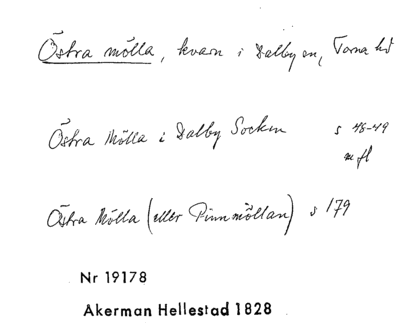 Östra mölla, kvarn i Dalby sn, Torna hd
Östra Mölla i Dalby Socken s 48-49
m fl
Östra Mölla (eller Pinnmöllan) s 179
Nr 19178
Akerman Hellestad 1828